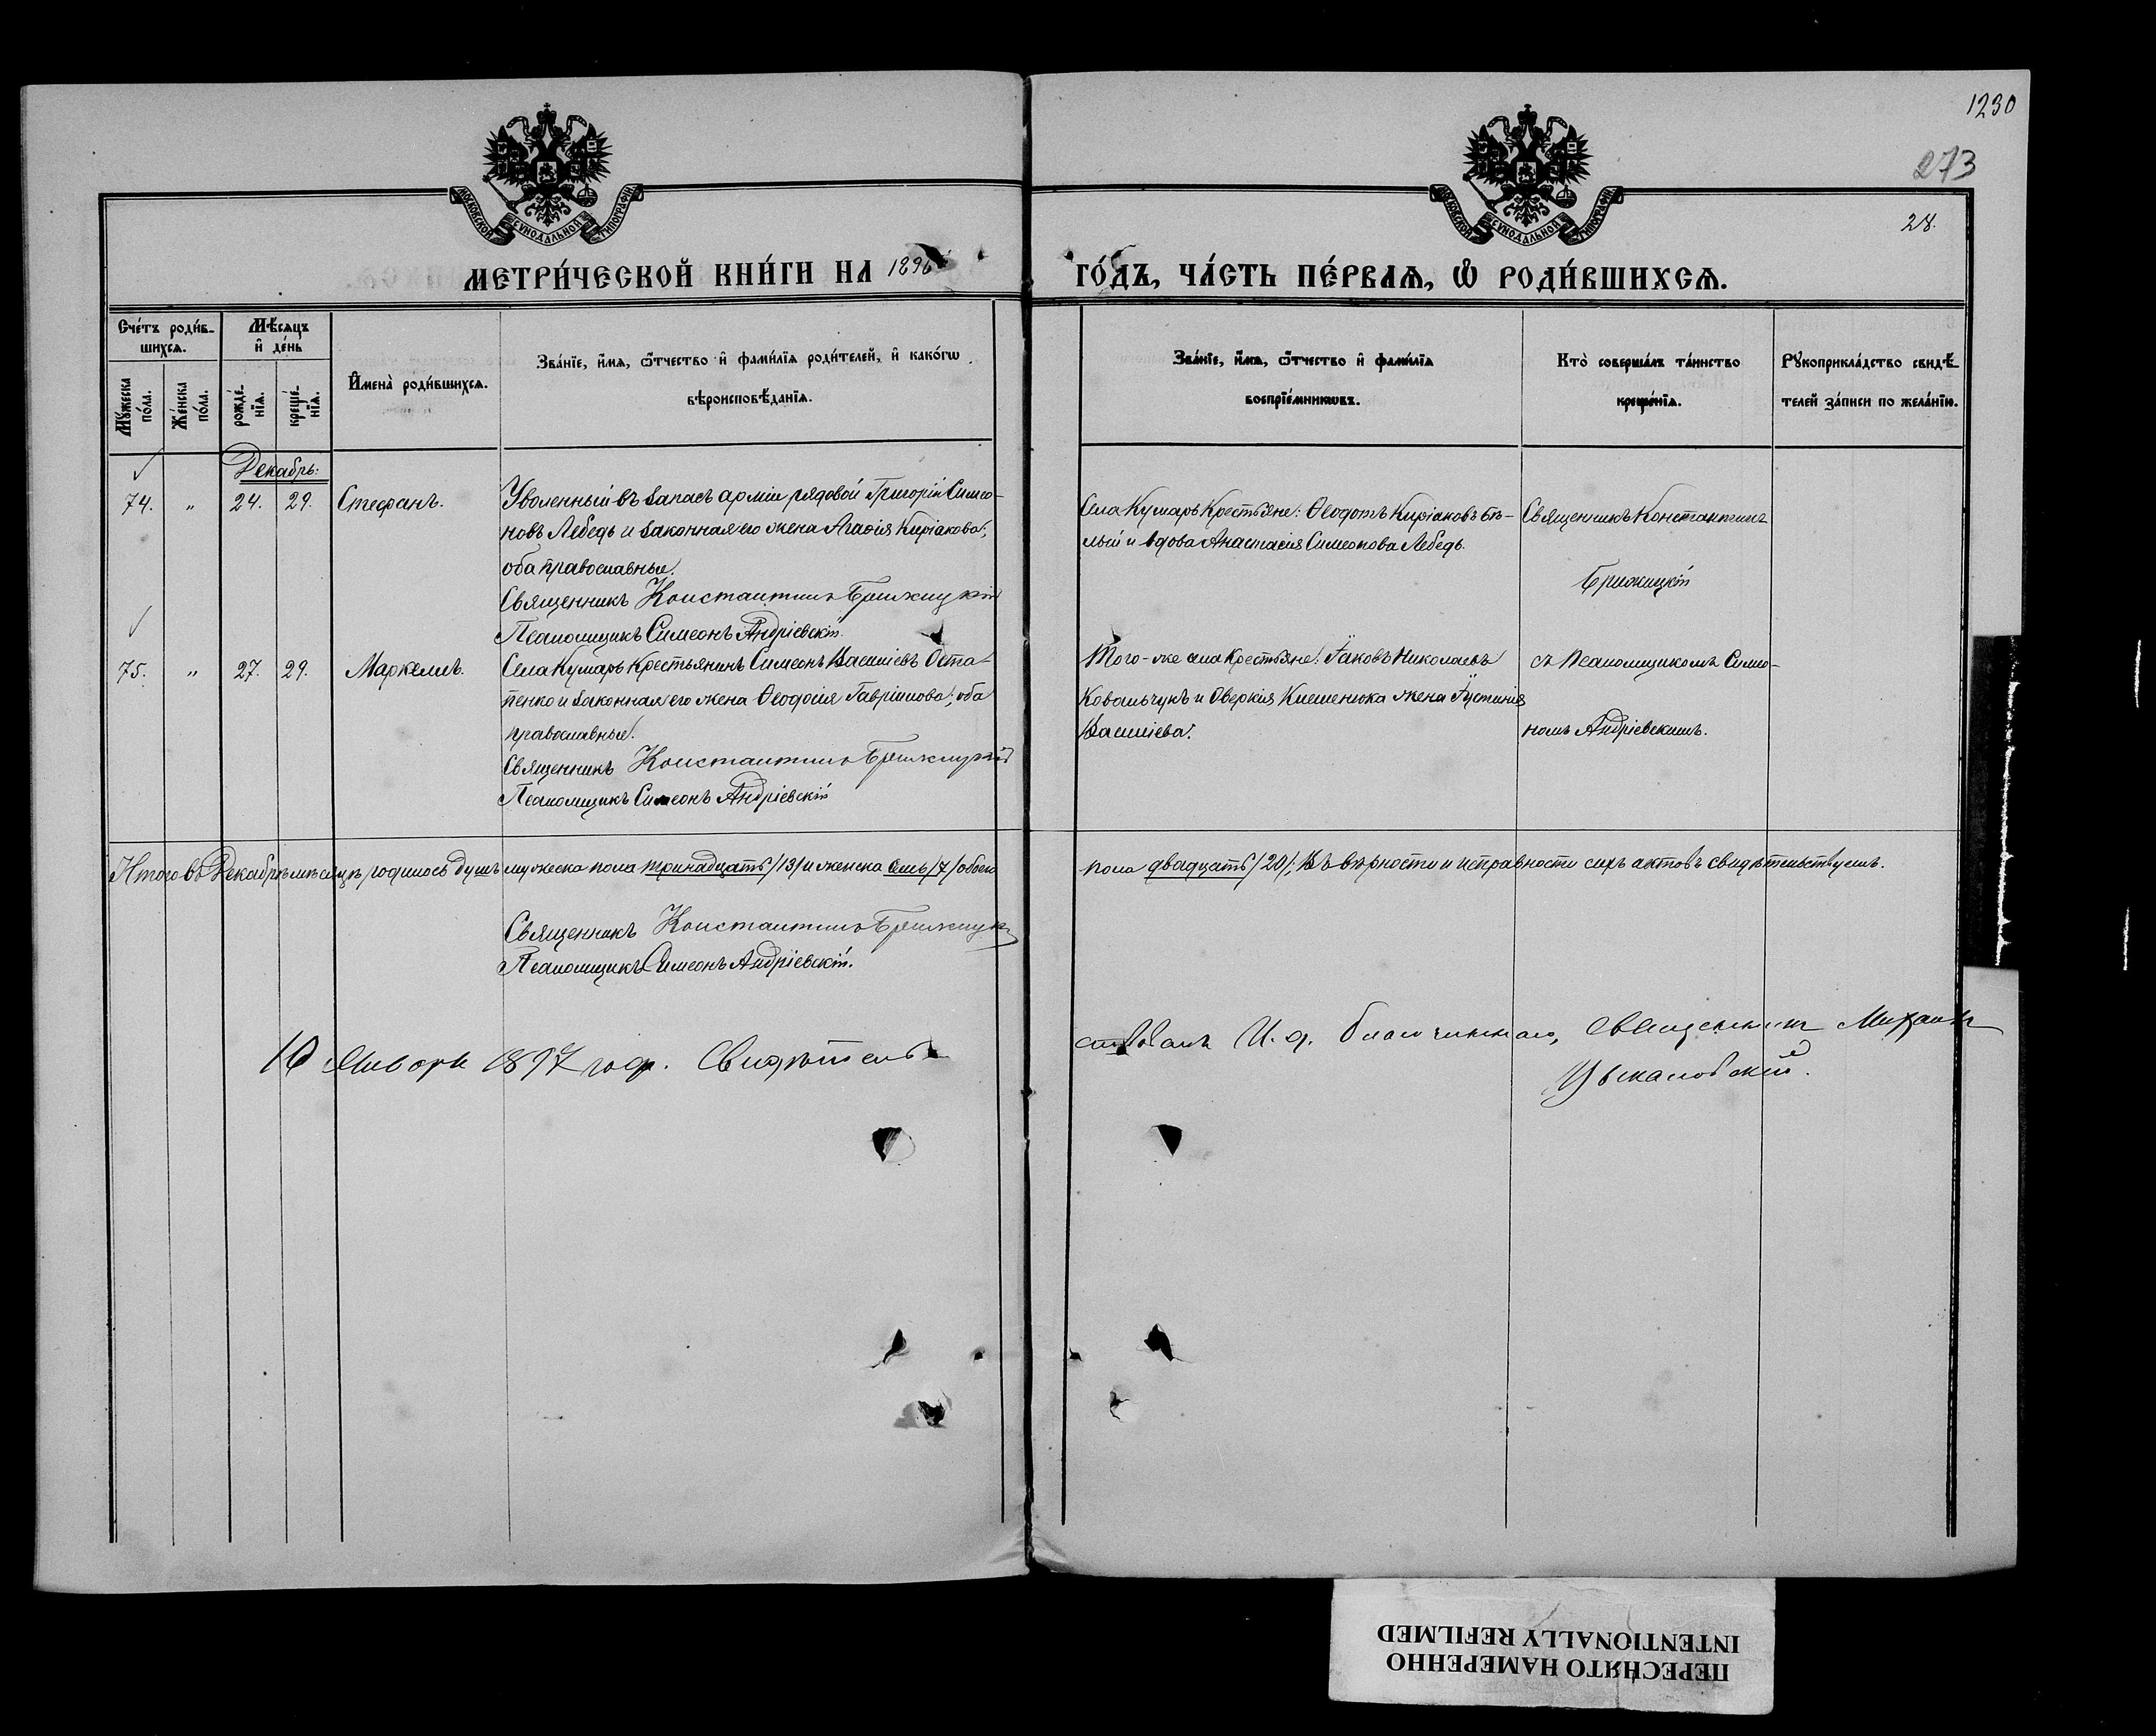 1230
273
28.
МОСКОВСКОЙ СѴНОДАЛЬНОЙ ТИПОГРАФІИ
МОСКОВСКОЙ СѴНОДАЛЬНОЙ ТИПОГРАФІИ
МЕТРИ́ЧЕСКОЙ КНИ́ГИ НА 1896 ГО́ДЪ, ЧА́СТЬ ПЕ́РВАѦ, Ѿ РОДИ́ВШИХСѦ.
Счетъ роди́в-
шихсѧ.
Мѣ́сѧцъ
и҆ де́нь
Мꙋжеска
по́ла.
Же́нска
по́ла.
рожде́-
нїѧ.
креще́-
нїѧ.
И҆мена̀ роди́вшихсѧ.
Зва́нїе, и҆́мѧ, ѻ҆́тчество и҆ фами́лїѧ роди́телей, и҆ како́гѡ
вѣроисповѣ́данїѧ.
Зва́нїе, и҆́мѧ, ѻ҆́тчество и҆ фами́лїѧ
воспрїе́мникѡвъ.
Кто̀ соверша́лъ та́инство
креще́нїѧ.
Рꙋкоприкла́дство свидѣ́-
телей за́писи по жела́нїю.
Декабрь:
74. " 24. 29. Стефанъ.
Уволенный въ запасъ арміи рядовой Григорій Симео-
новъ Лебедь и законная его жена Агафія Киріакова;
оба православные.
Священникъ Константинъ Брижицкій
Псаломщикъ Симеонъ Андріевскій.
Села Кумаръ Крестьяне: Ѳеодотъ Киріаковъ Бѣ-
лый и вдова Анастасія Симеонова Лебедь.
Священникъ Константинъ
Брижицкій
75. " 27. 29. Маркеллъ.
Села Кумаръ Крестьянинъ Симеонъ Василіевъ Оста-
пенко и законная его жена Ѳеодосія Гавріилова; оба
православные.
Священникъ Константинъ Брижицкій
Псаломщикъ Симеонъ Андріевскій
Того-же села Крестьяне: Іаковъ Николаевъ
Ковальчукъ и Оверкія жена Іустинія
Василіева.
съ Псаломщикомъ Симео-
номъ Андріевскимъ.
Итого въ Декабрѣ мѣсяцѣ родилось душъ мужеска пола тринадцать /13/ и женска семь /7/ обоего пола двадцать /20/; Въ вѣрности и исправности сихъ актовъ свидѣтельствуемъ.
Священникъ Константинъ Брижицкій
Псаломщикъ Симеонъ Андріевскій.
10 Января 1897 года. Свидѣтельствовалъ И. д. благочиннаго, священникъ Михаилъ
ПЕРЕСНЯТО НАМЕРЕННО
INTENTIONALLY REFILMED